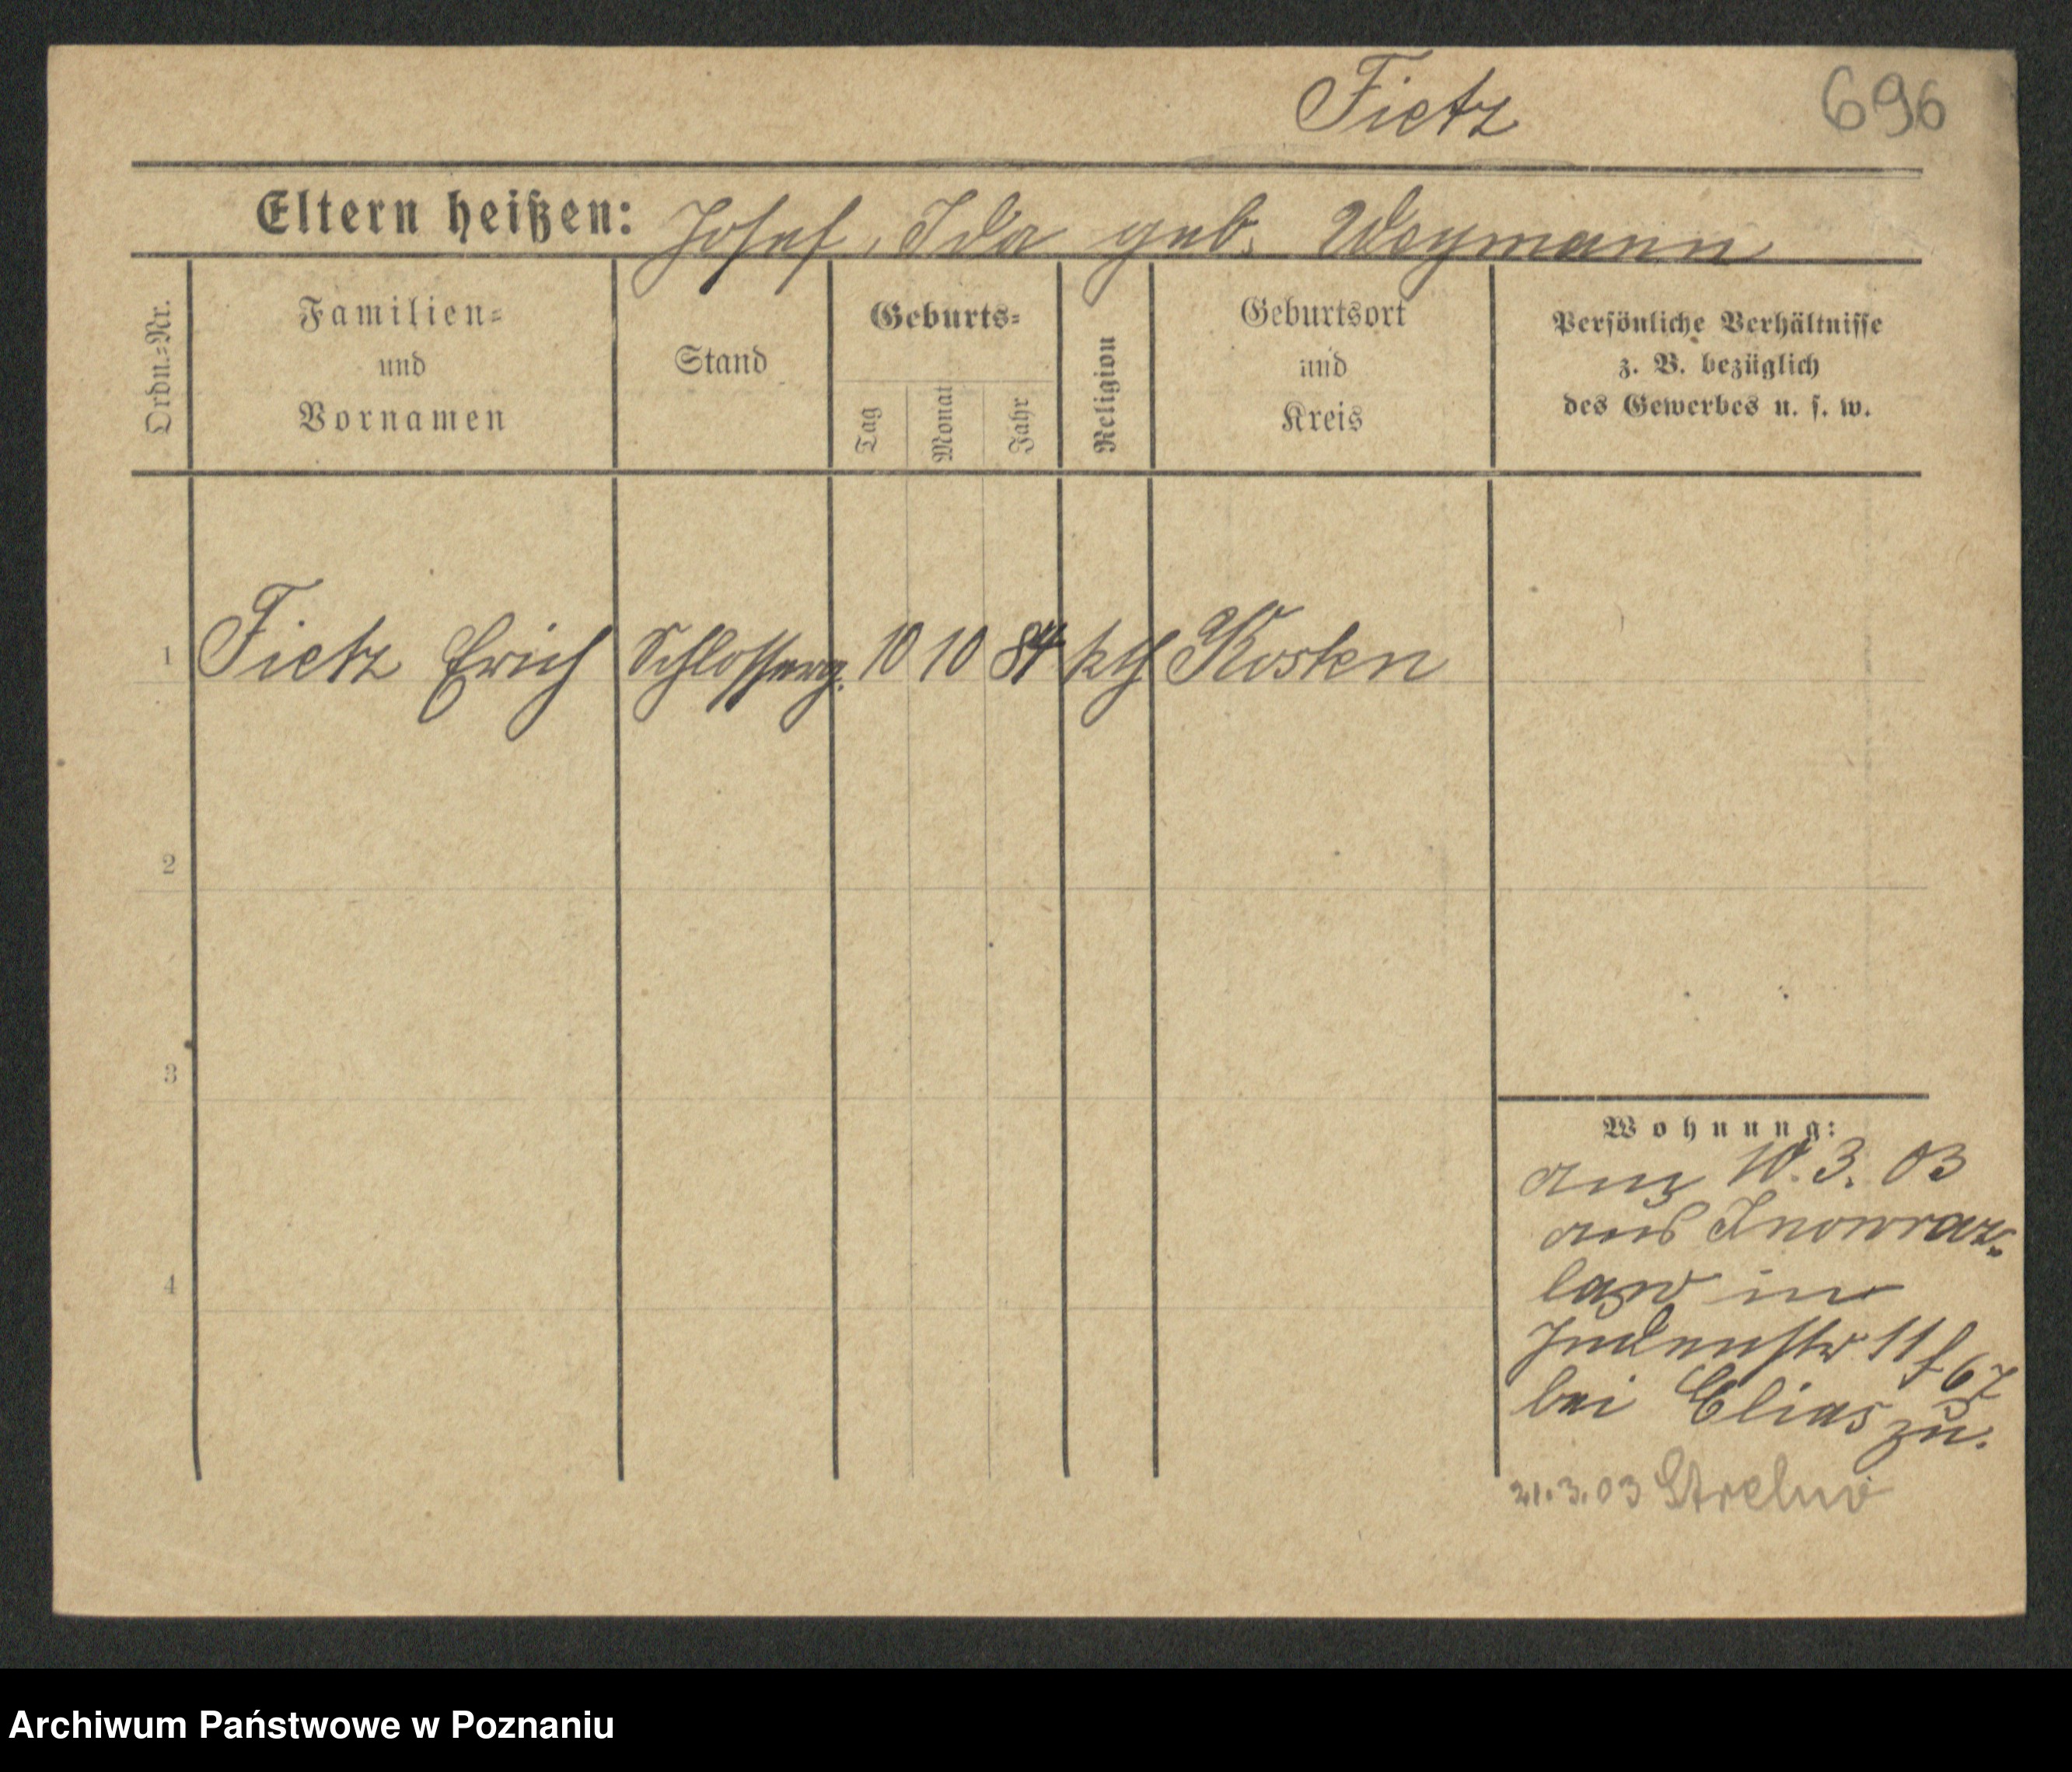 Fietz
696
Eltern heißen: Josef, Ida geb. Weymann
Ordn.=Nr.
Familien=
und
Vornamen
Stand
Geburts=
Tag
Monat
Jahr
Religion
Geburtsort
und
Kreis
Persönliche Verhältnisse
z. B. bezüglich
des Gewerbes u. s. w.
1 Fietz Erich Schlosserg. 10 10 84 kth Kosten
2
3
4
Wohnung:
am 10.3.03
aus Inowraz-
law in
Judenstr 11 f 67
bei Elias zu.
21.3.03 Strelno
Archiwum Państwowe w Poznaniu